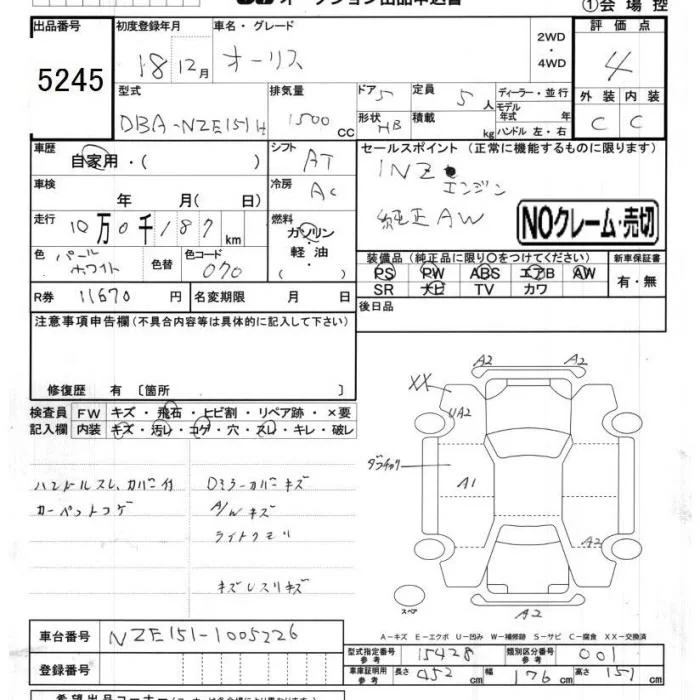 オークション出品申込書
①会場控
出品番号 初度登録年月 車名・グレード 2WD ・ 4WD 評価点
5245 18 12月 オーリス 4
型式 排気量 ドア 5 定員 5人 ディーラー・並行
DBA-NZE151H 1500 CC 形状 HB 積載 kg モデル年式 年 ハンドル 左・右
外装 内装
C C
車歴 自家用・( ) シフト AT セールスポイント (正常に機能するものに限ります)
車検 年 月( 日) 冷房 AC 1NZ エンジン
走行 10万0千187km 燃料 ガソリン 軽油・ 純正AW
NOクレーム・売切
色 パールホワイト 色替 色コード 070
装備品 (純正品に限り○をつけてください) 新車保証書
PS PW ABS エアB AW 有・無
SR ナビ TV カワ
R券 11670円 名変期限 月 日 後日品
注意事項申告欄(不具合内容等は具体的に記入して下さい)
修復歴 有 〔箇所 〕
検査員 FW キズ・飛石・ヒビ割・リペア跡・×要
記入欄 内装 キズ・汚レ・コゲ・穴・スレ・キレ・破レ
ハンドルスレ、カバー付 Dミラーカバーキズ
カーペットコゲ A/Wキズ
ライトクモリ
キズレスリキズ
A2 A2
XX UA2
A1
A2
A2
スペア
A-キズ E-エクボ U-凹み W-補修跡 S-サビ C-腐食 XX-交換済
車台番号 NZE151-1005226
型式指定番号 参考 15428 類別区分番号 参考 001
登録番号 車庫証明用 参考 長さ 452cm 幅 176cm 高さ 151cm
希望出品コーナー